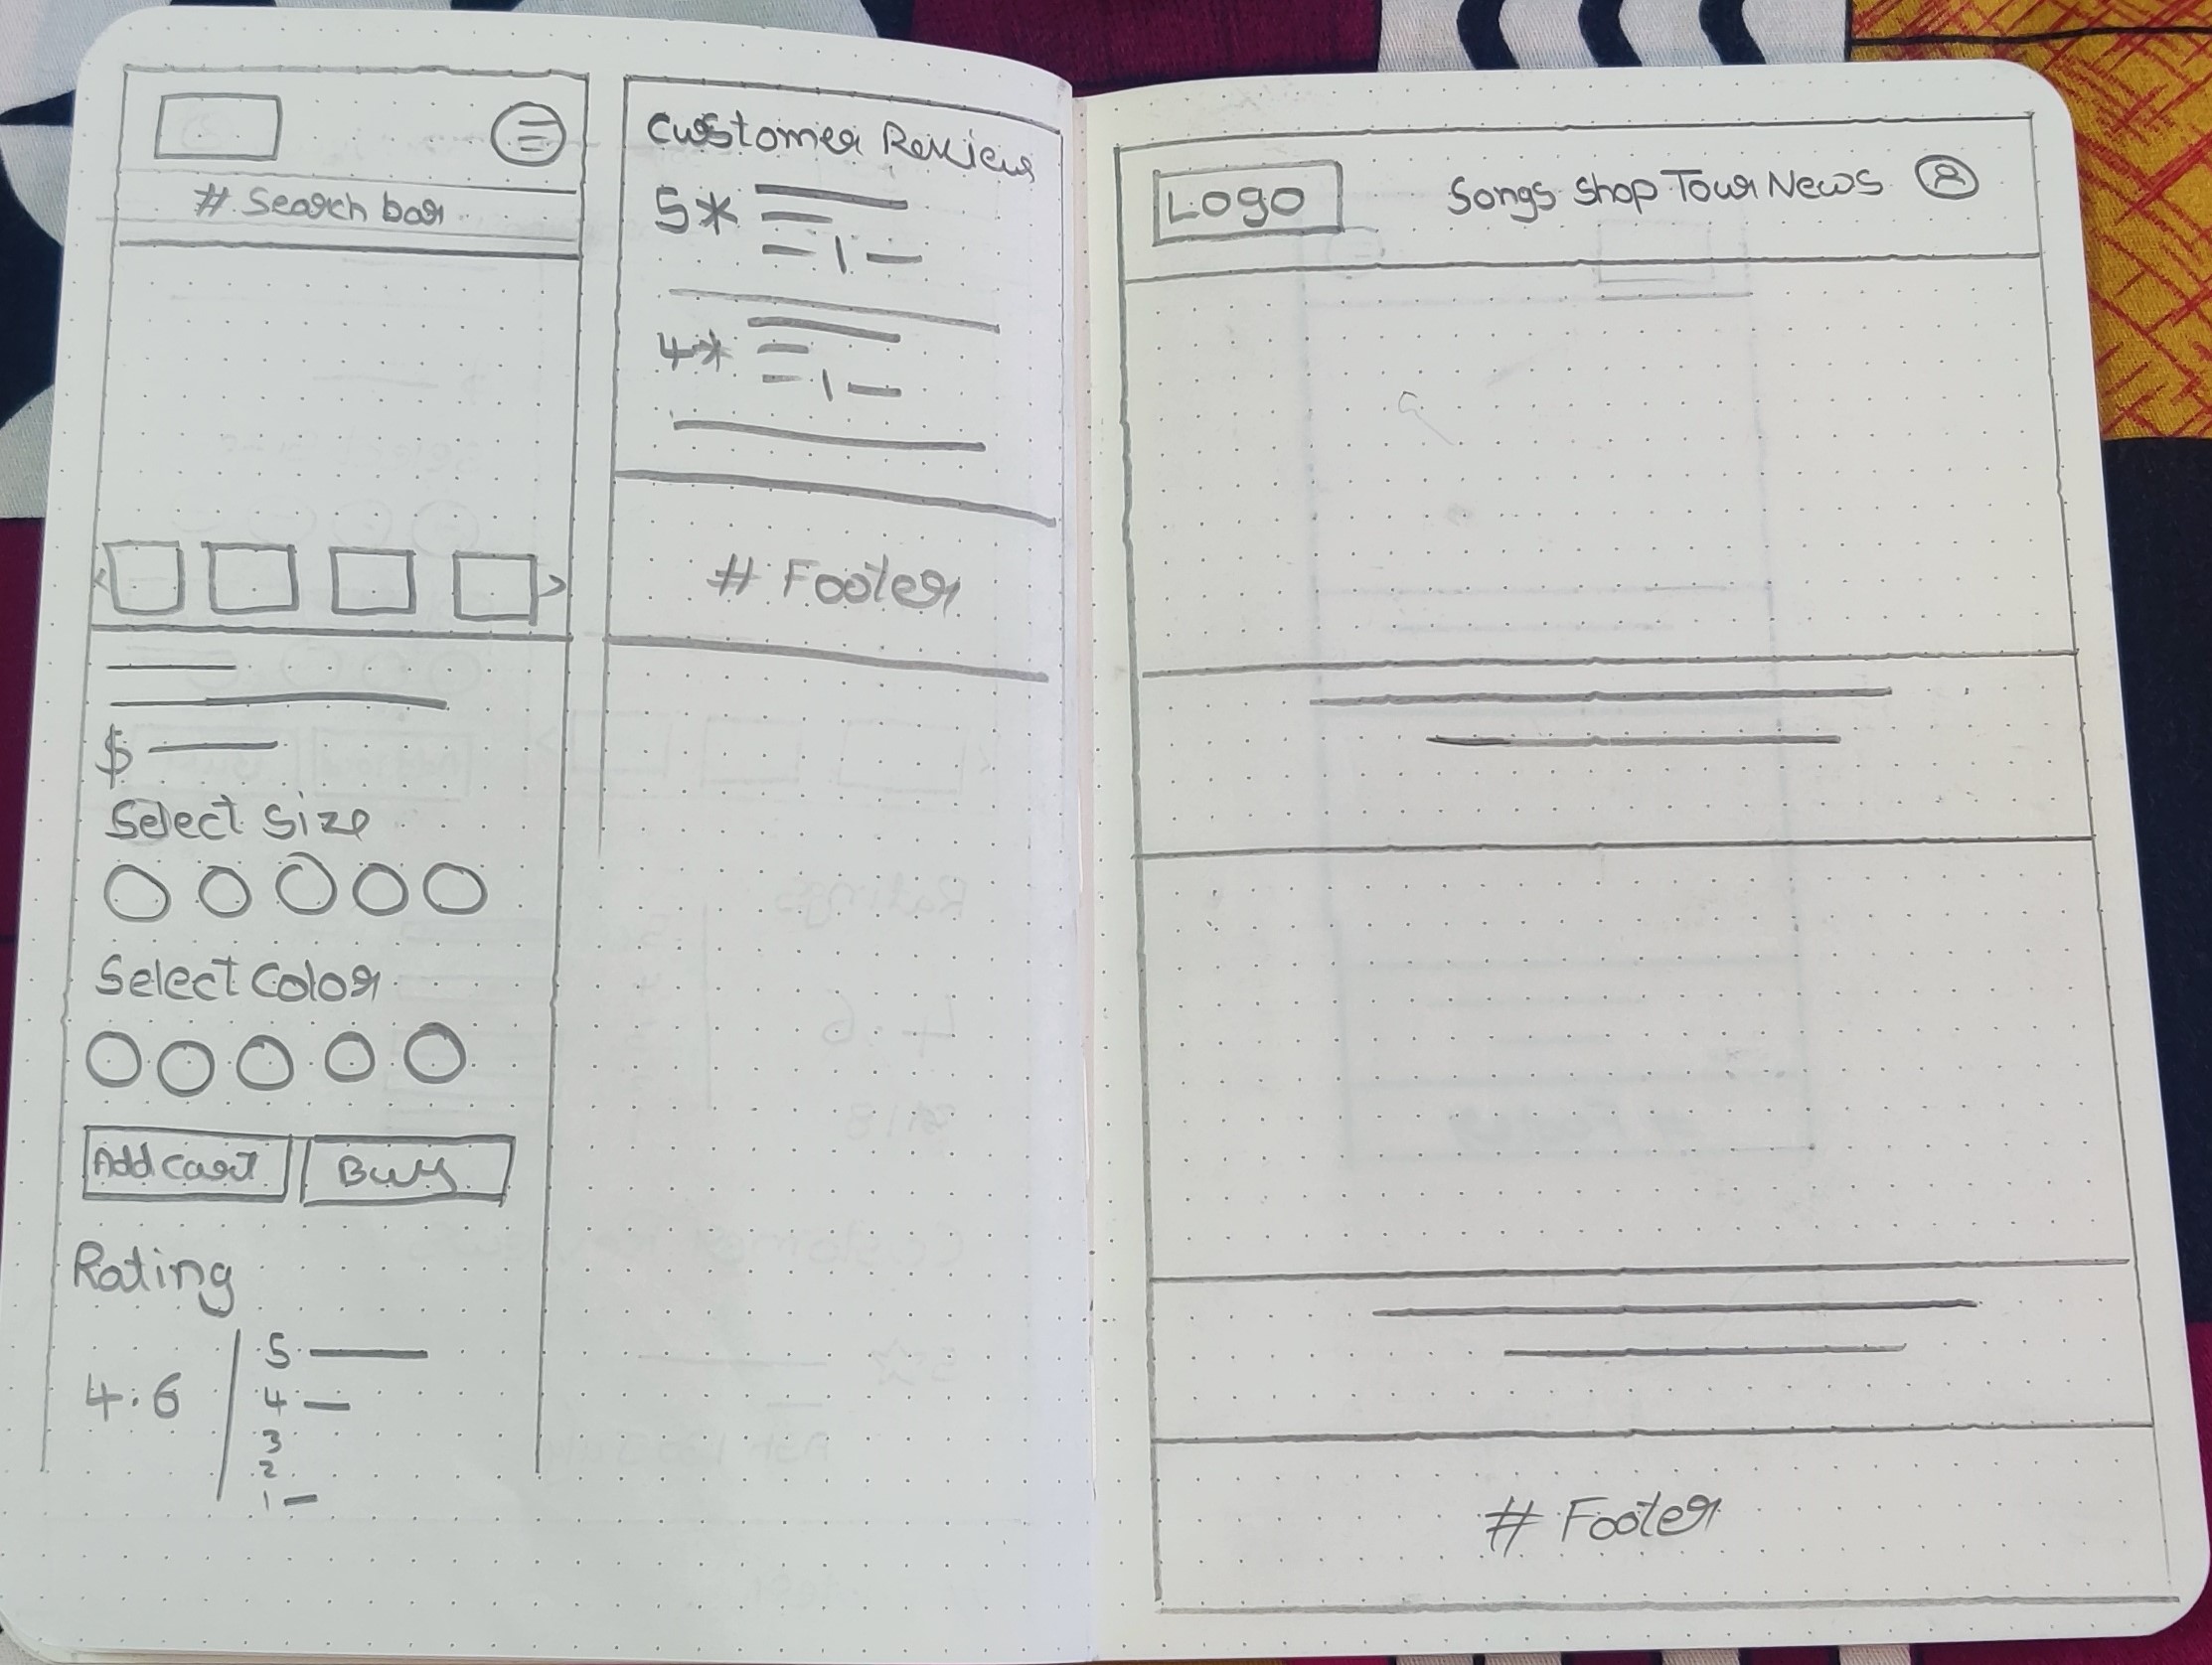 # Search bar
$
Select Size
Select Color
Add cart
Buy
Rating
4.6
5
4
3
2
1
Customer Review
5*
4*
# Footer
Logo
Songs Shop Tour News
# Footer